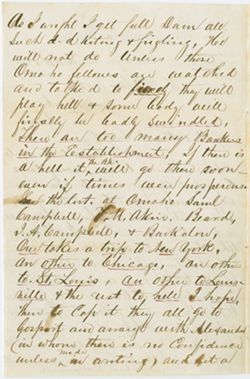 As I wright I get full Dam all
such d-d kiting & figling, Ho
will not do unless those
Omaho fellows are watched
and talked to they will
play hell & some body will
finally be badly swindled,
There are too many Bankers
in the Establishment, If there is
a hell it will go there soon
even if times were prosperous
in the list, at Omaho Saml
Campbell, Akin. Beard,
J. H. Campbell, & Barkalon,
One takes a trip to New York,
An other to Chicago, an other
to St. Louis, an other to Louis-
ville & the rest to hell I hope,
then to Cap it they all go to
Gosport and arrange with Alexander
(in whom there is no Confidence
unless made in writing) and get a